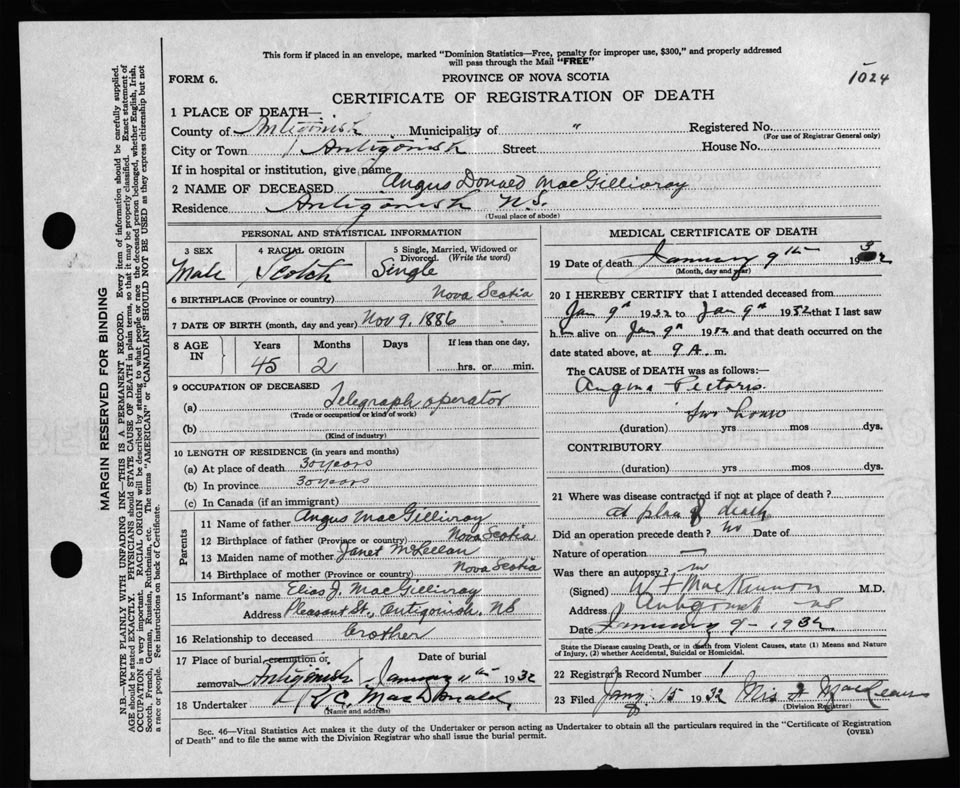 This form if placed in an envelope, marked "Dominion Statistics—Free, penalty for improper use, $300," and properly addressed
will pass through the Mail "FREE"
FORM 6.
PROVINCE OF NOVA SCOTIA
1024
CERTIFICATE OF REGISTRATION OF DEATH
1 PLACE OF DEATH—
County of Antigonish Municipality of " Registered No.
(For use of Registrar General only)
City or Town Antigonish Street House No.
If in hospital or institution, give name
2 NAME OF DECEASED Angus Donald MacGillivray
Residence Antigonish N.S.
(Usual place of abode)
PERSONAL AND STATISTICAL INFORMATION
3 SEX 4 RACIAL ORIGIN 5 Single, Married, Widowed or
Divorced. (Write the word)
Male Scotch Single
6 BIRTHPLACE (Province or country) Nova Scotia
7 DATE OF BIRTH (month, day and year) Nov 9, 1886
8 AGE IN Years Months Days If less than one day,
45 2 hrs. or min.
9 OCCUPATION OF DECEASED
(a) Telegraph operator
(Trade or occupation or kind of work)
(b)
(Kind of industry)
10 LENGTH OF RESIDENCE (in years and months)
(a) At place of death 30 years
(b) In province 30 years
(c) In Canada (if an immigrant)
Parents
11 Name of father Angus MacGillivray
12 Birthplace of father (Province or country) Nova Scotia
13 Maiden name of mother Janet McLellan
14 Birthplace of mother (Province or country) Nova Scotia
15 Informant's name Elias J. MacGillivray
Address Pleasant St., Antigonish, NS
16 Relationship to deceased brother
17 Place of burial, cremation or Date of burial
removal Antigonish January 11th 1932
18 Undertaker R. C. MacDonald
(Name and address)
MEDICAL CERTIFICATE OF DEATH
19 Date of death January 9th 1932
(Month, day and year)
20 I HEREBY CERTIFY that I attended deceased from
Jan 9th 1932 to Jan 9th 1932 that I last saw
h alive on Jan 9th 1932 and that death occurred on
the date stated above, at 9 A. m.
The CAUSE of DEATH was as follows:—
Angina Pectoris
two hours
(duration) yrs mos dys.
CONTRIBUTORY
(duration) yrs mos dys.
21 Where was disease contracted if not at place of death?
at place of death
Did an operation precede death? no Date of
Nature of operation —
Was there an autopsy? no
(Signed) W F MacKinnon M.D.
Address Antigonish NS
Date January 9 - 1932
State the Disease causing Death, or in death from Violent Causes, state (1) Means and Nature
of Injury, (2) whether Accidental, Suicidal or Homicidal.
22 Registrar's Record Number 1
23 Filed Jany 15 1932 Mrs
(Division Registrar)
Sec. 46—Vital Statistics Act makes it the duty of the Undertaker or person acting as Undertaker to obtain all the particulars required in the "Certificate of Registration
of Death" and to file the same with the Division Registrar who shall issue the burial permit.
(OVER)
MARGIN RESERVED FOR BINDING
N.B.—WRITE PLAINLY WITH UNFADING INK—THIS IS A PERMANENT RECORD. Every item of information should be carefully supplied.
AGE should be stated EXACTLY. PHYSICIANS should STATE CAUSE OF DEATH in plain terms, so that it may be properly classified. Exact statement of
OCCUPATION is very important. RACIAL ORIGIN will be described by stating to what people or race the deceased person belonged, whether English, Irish,
Scotch, French, German, Russian, Ruthenian, etc. The terms "AMERICAN" or "CANADIAN" SHOULD NOT BE USED as they express citizenship but not
a race or people. Fee instructions on back of Certificate.